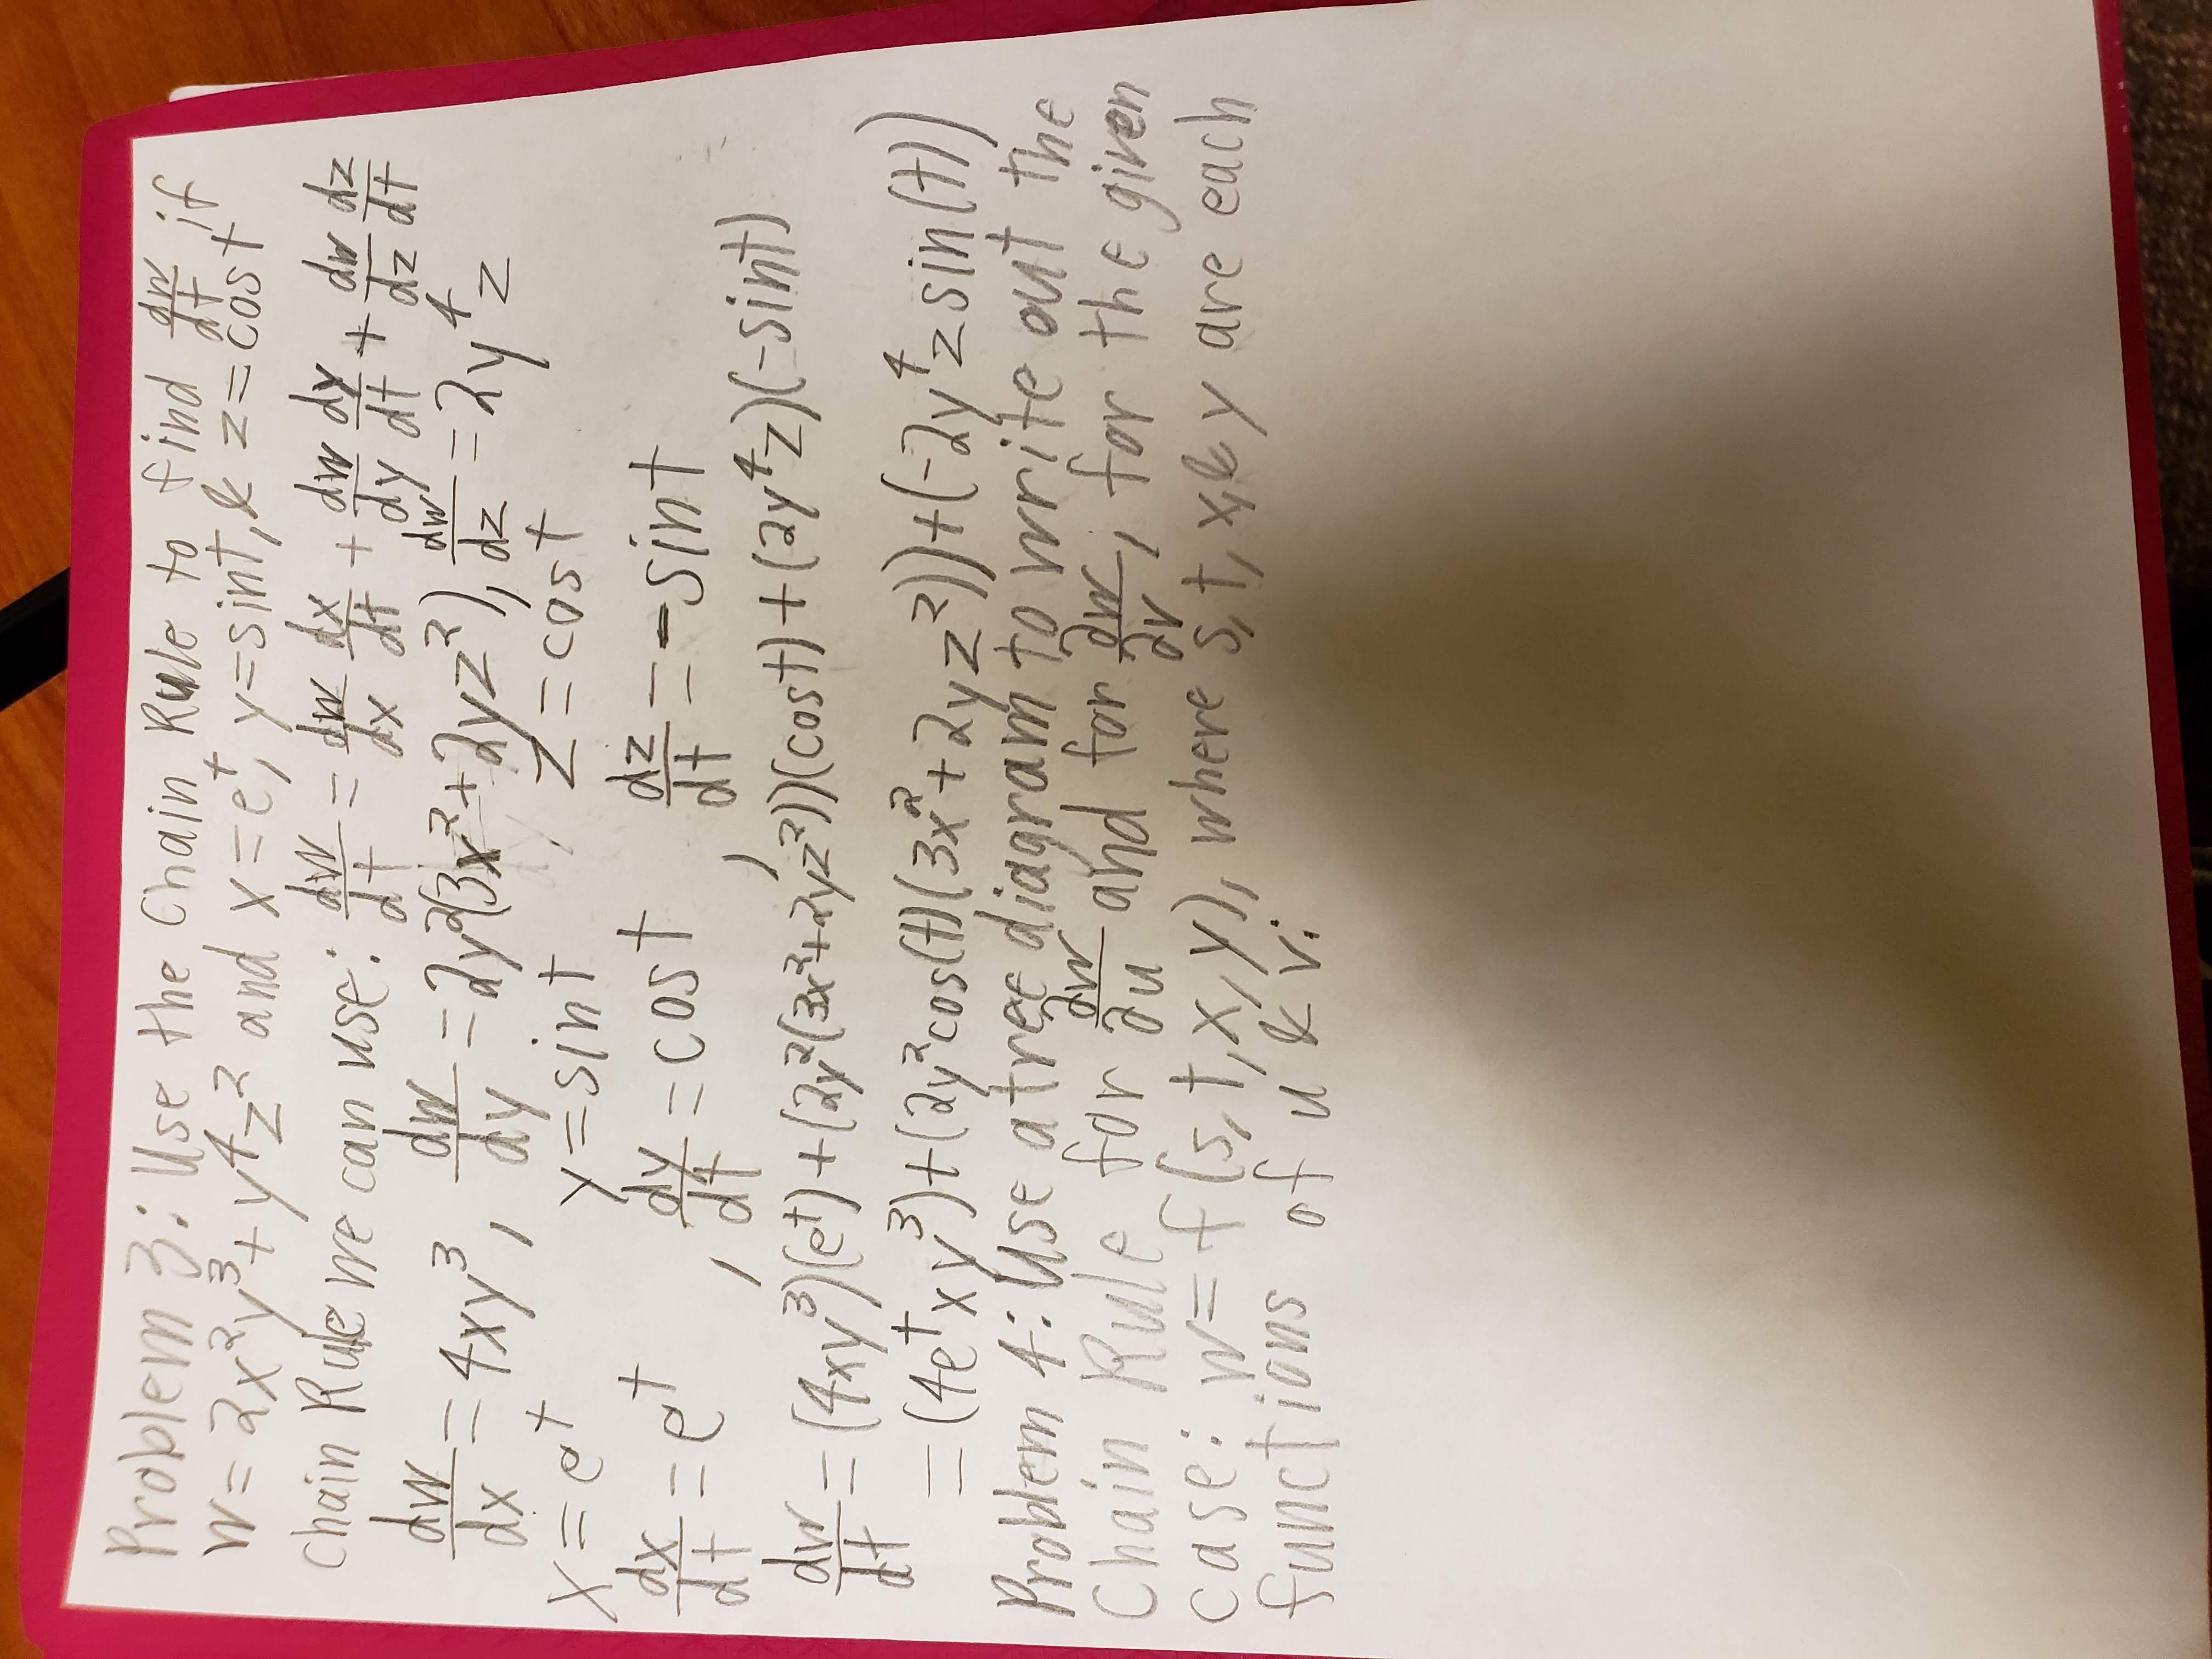 Problem 3: Use the Chain Rule to find dw/dt if
w = 2x²y³ + y⁴z² and x = eᵗ, y = sint, & z = cost
Chain Rule we can use: dw/dt = dw/dx dx/dt + dw/dy dy/dt + dw/dz dz/dt
dw/dx = 4xy³, dw/dy = 2y²(3x² + 2yz²), dw/dz = 2y⁴z
x = eᵗ y = sint z = cost
dx/dt = eᵗ, dy/dt = cost, dz/dt = -sint
dw/dt = (4xy³)(eᵗ) + (2y²(3x² + 2yz²))(cost) + (2y⁴z)(-sint)
= (4eᵗxy³) + (2y²cos(t)(3x² + 2yz²)) + (-2y⁴z sin(t))
Problem 4: Use a tree diagram to write out the
Chain Rule for ∂w/∂u and for ∂w/∂v, for the given
case: w = f(s, t, x, y), where s, t, x, & y are each
functions of u & v: